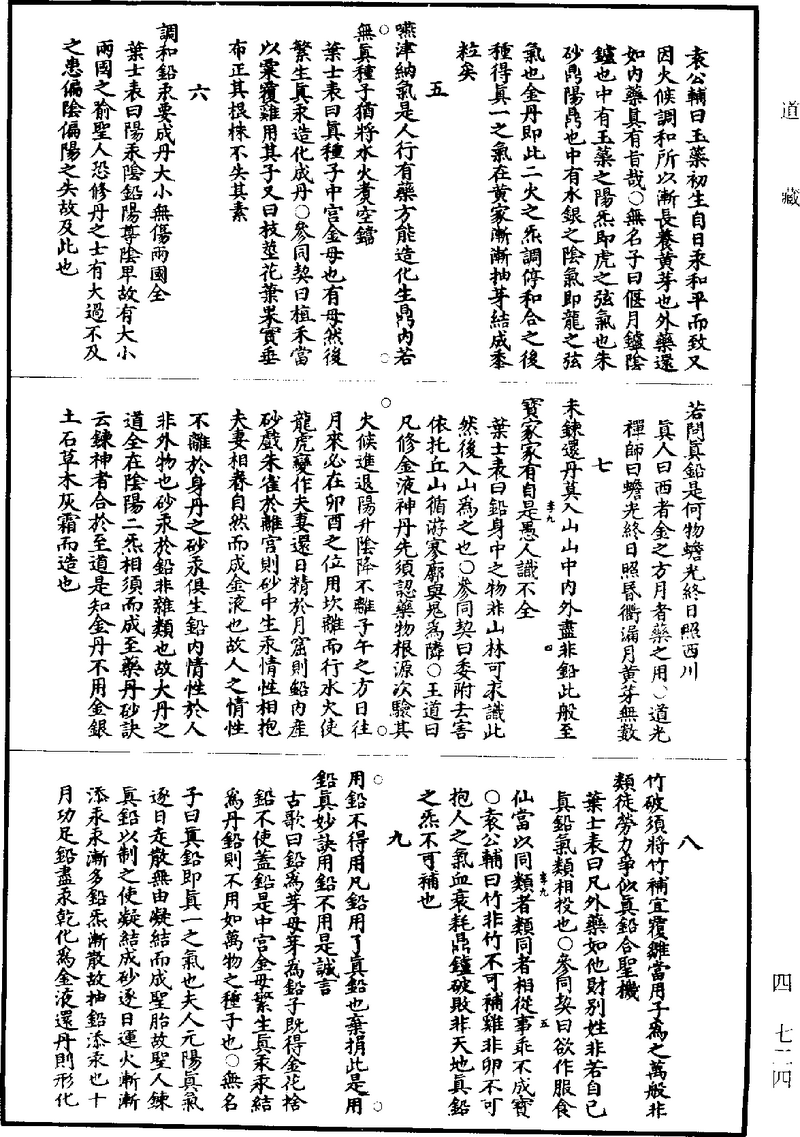 道藏
袁公輔曰玉藥初生自日汞和平而致又
因火候調和所以漸長養黄芽也外藥還
如内藥真有旨哉○無名子曰偃月鑪陰
鑪也中有玉藥之陽炁即虎之弦氣也朱
砂鼎陽鼎也中有水銀之陰氣即龍之弦
氣也金丹即此二火之炁調停和合之後
種得真一之氣在黄家漸漸抽芽結成黍
粒矣
五
嚥津納氣是人行有藥方能造化生鼎内若
無真種子猶將水火煑空鐺
葉士表曰真種子中宫金母也有母然後
繁生真汞造化成丹○參同契曰植禾當
以粟覆雞用其子又曰枝莖花葉果實垂
布正其根株不失其素
六
調和鉛汞要成丹大小無傷兩國全
葉士表曰陽汞陰鉛陽尊陰卑故有大小
兩國之喻聖人恐修丹之士有大過不及
之患偏陰偏陽之失故及此也
若問真鉛是何物蟾光終日照西川
真人曰西者金之方月者藥之用○道光
禪師曰蟾光終日照昏衢漏月黄芽無數
七
未鍊還丹莫入山山中内外盡非鉛此般至
寳家家有自是愚人識不全
葉士表曰鉛身中之物非山林可求識此
然後入山爲之也○參同契曰委附去害
依托丘山循游寥廓與鬼爲隣○王道曰
凡修金液神丹先須認藥物根源次驗其
火候進退陽升陰降不離子午之方日往
月來必在卯酉之位用坎離而行水火使
龍虎變作夫妻還日精於月窟則鉛内産
砂戲朱雀於離宫則砂中生汞情性相抱
夫妻相眷自然而成金液也故人之情性
不離於身丹之砂汞俱生鉛内情性於人
非外物也砂汞於鉛非雜類也故大丹之
道全在陰陽二炁相須而成至藥丹砂訣
云鍊神者合於至道是知金丹不用金銀
土石草木灰霜而造也
八
竹破須將竹補宜覆雞當用子爲之萬般非
類徒勞力爭似真鉛合聖機
葉士表曰凡外藥如他財别姓非若自己
真鉛氣類相投也○參同契曰欲作服食
仙當以同類者類同者相從事乖不成寳
○袁公輔曰竹非竹不可補雞非卵不可
抱人之氣血衰耗鼎鑪破敗非天地真鉛
之炁不可補也
九
用鉛不得用凡鉛用了真鉛也棄捐此是用
鉛真妙訣用鉛不用是誠言
古歌曰鉛爲芽母芽爲鉛子既得金花捨
鉛不使蓋鉛是中宫金母繁生真汞汞結
爲丹鉛則不用如萬物之種子也○無名
子曰真鉛即真一之氣也夫人元陽真氣
逐日走散無由凝結而成聖胎故聖人鍊
真鉛以制之使凝結成砂逐日運火漸漸
添汞汞漸多鉛炁漸散故抽鉛添汞也十
月功足鉛盡汞乾化爲金液還丹則形化
四 七二四